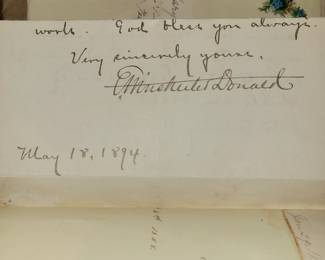 work. God bless you always.
Very sincerely yours,
E Winchester Donald
May 18, 1894.